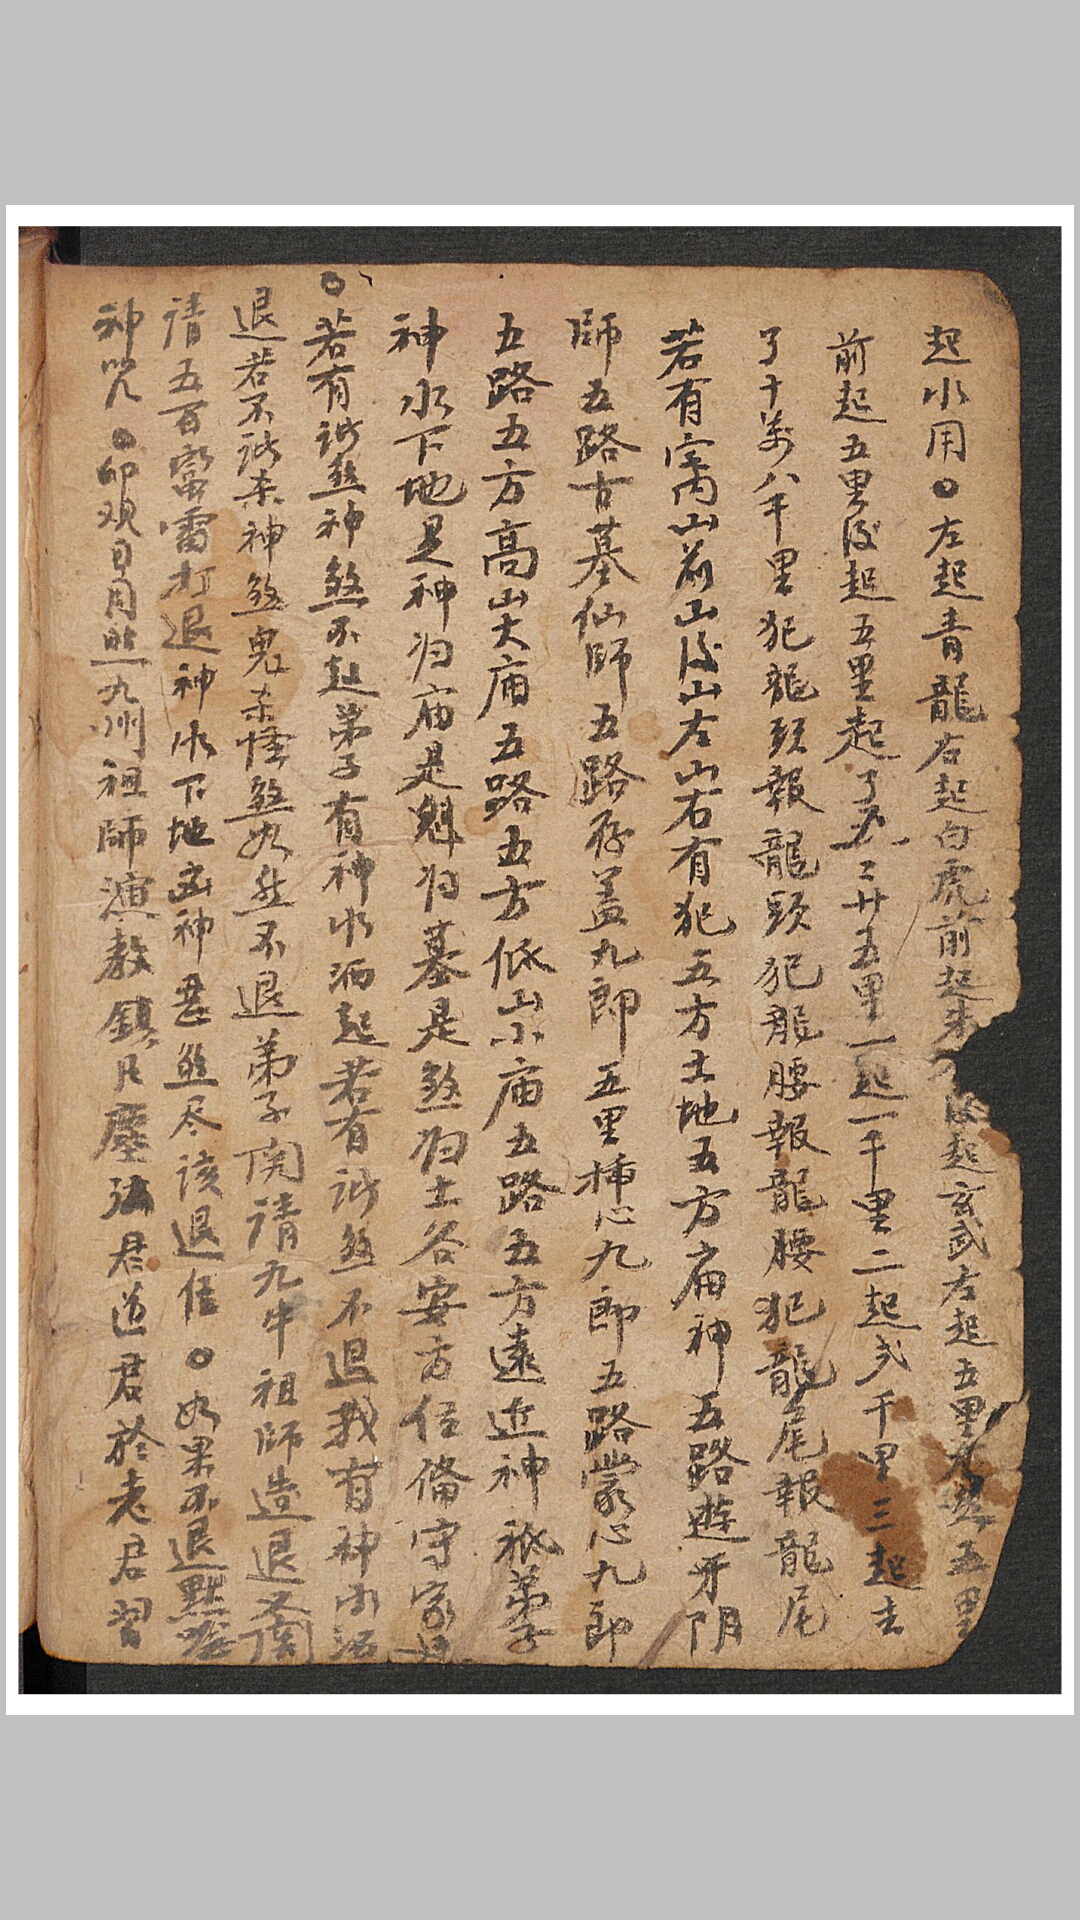 起水用○左起青龍右起白虎前起朱 後起玄武左起五里 五里
前起五里後起五里起了五 二廿五里一起一千里二起弍千里三起去
了十萬八千里犯龍頭報龍頭犯龍腰報龍腰犯龍尾報龍尾
若有 山前山後山左山右有犯五方土地五方廟神五路遊 阴
師五路古墓仙師五路存盖九郎五里 心九郎五路蒙心九郎
五路五方高山大庙五路五方低山小庙五路五方遠近神祇弟子
神水下地是神归庙是魁归墓是煞归土谷安方位俻守家
○若有此煞神煞不起弟子有神水洒起若有此煞不退我有神水洒
退若不此来神煞鬼 怪煞如然不退弟子関請九牛祖師造退
請五百蛮雷打退神水下地 神 煞尽該退位○如果不退點
神咒○卬观日月照九州祖師演教鎮凡塵 君道君於老君習